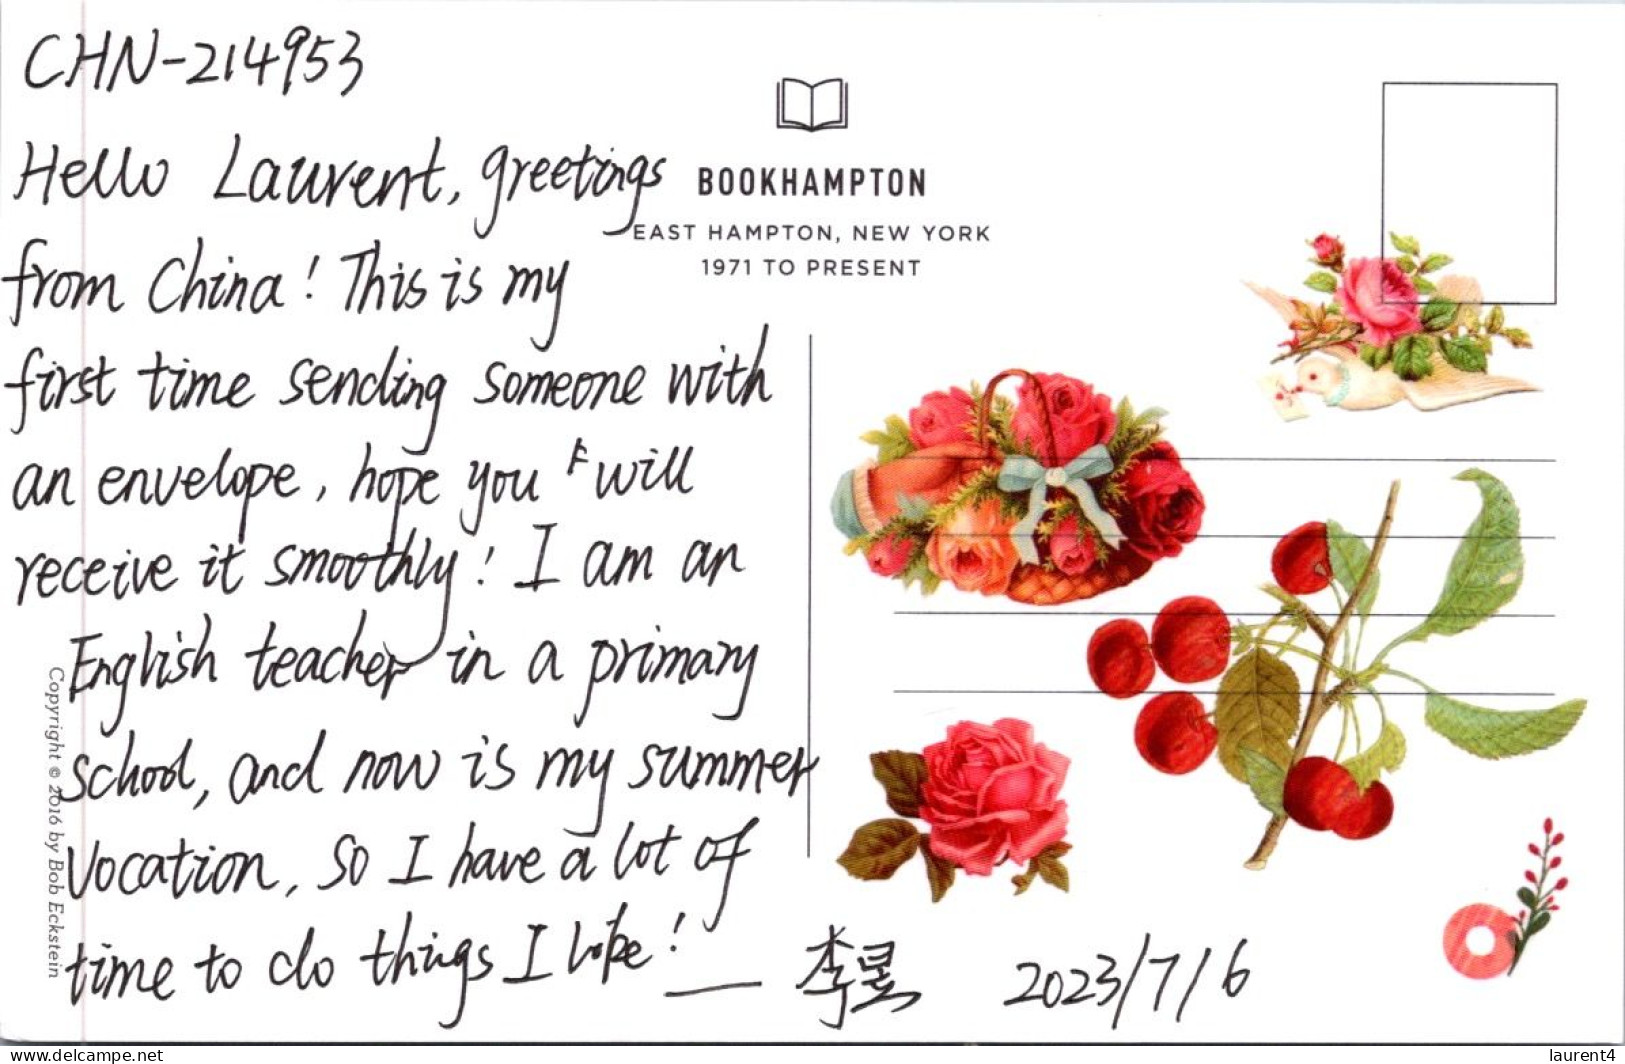 CHN-214953
Hello Laurent, greetings
from China! This is my
first time sending someone with
an envelope, hope you will
receive it smoothly! I am an
English teacher in a primary
school, and now is my summer
Vocation, so I have a lot of
time to do things I like!
李昱
2023/7/6
BOOKHAMPTON
EAST HAMPTON, NEW YORK
1971 TO PRESENT
Copyright © 2016 by Bob Eckstein
www.delcampe.net
laurent4